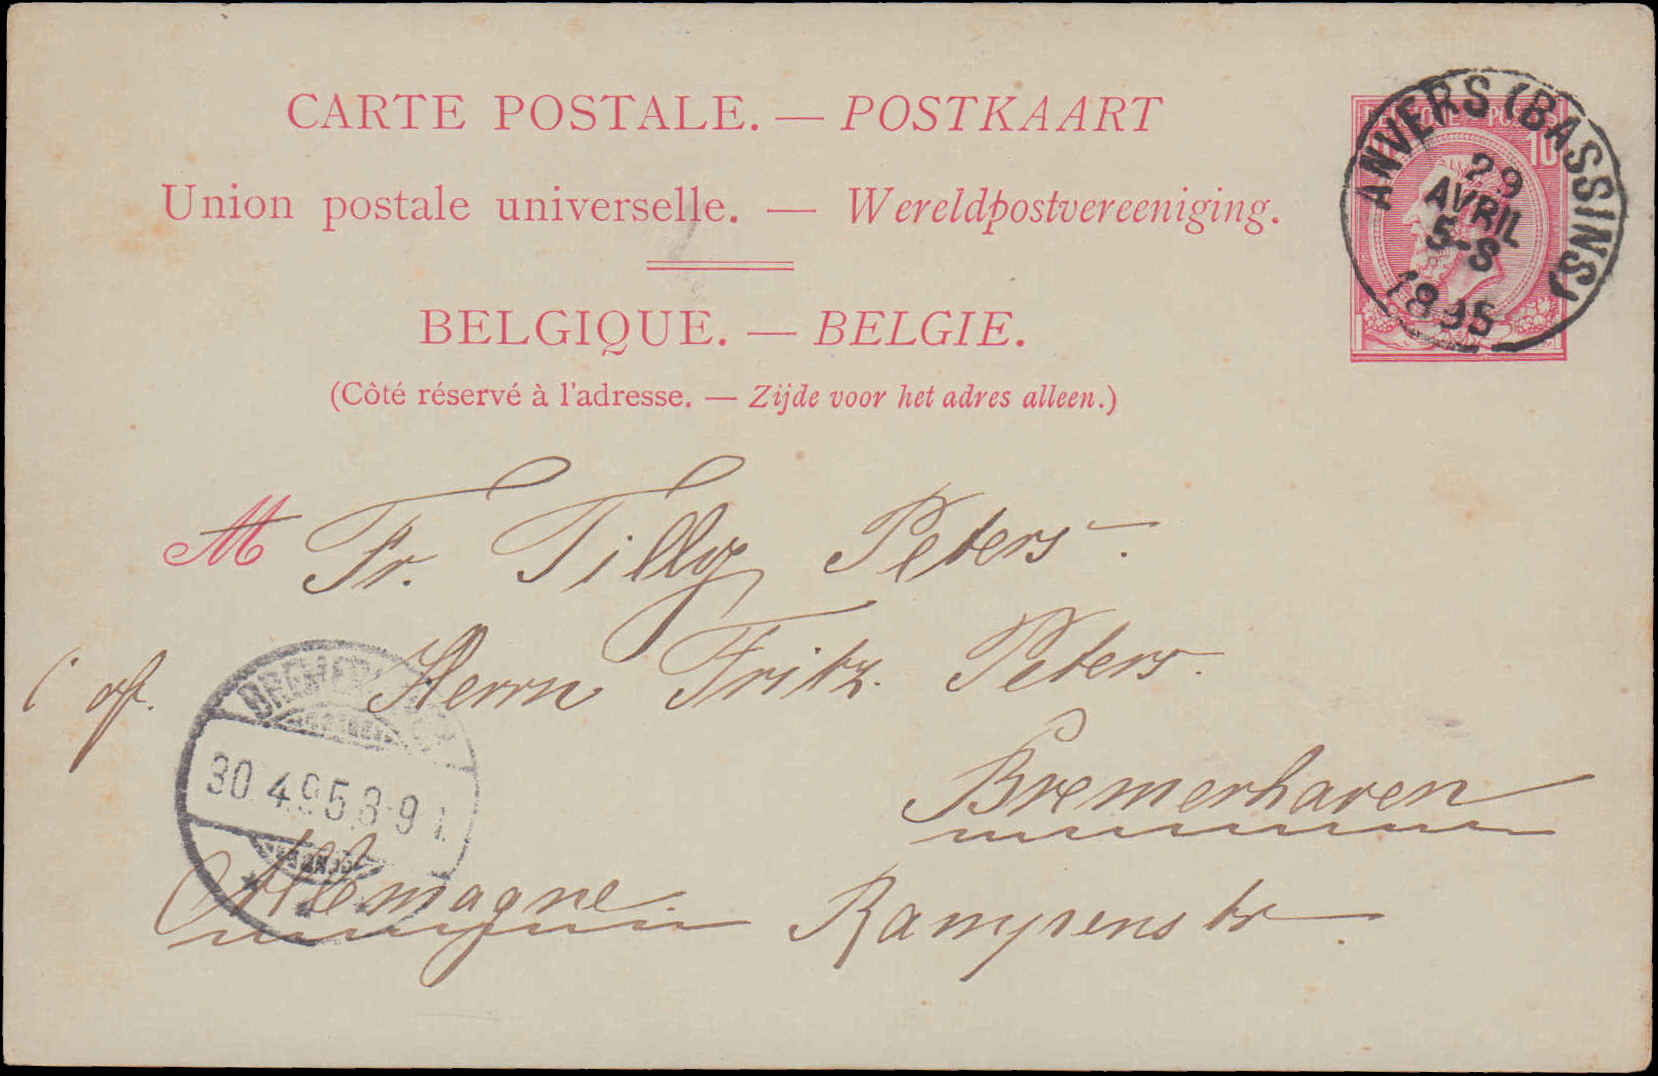 CARTE POSTALE. — POSTKAART
Union postale universelle. — Wereldpostvereeniging.
BELGIQUE. — BELGIE.
(Côté réservé à l'adresse. — Zijde voor het adres alleen.)
10
ANVERS (BASSINS)
29
AVRIL
5-S
1895
M Fr. Tilly Peters.
Herrn Fritz Peters.
Bremerhaven
30 4 95 8-9
Allemagne.